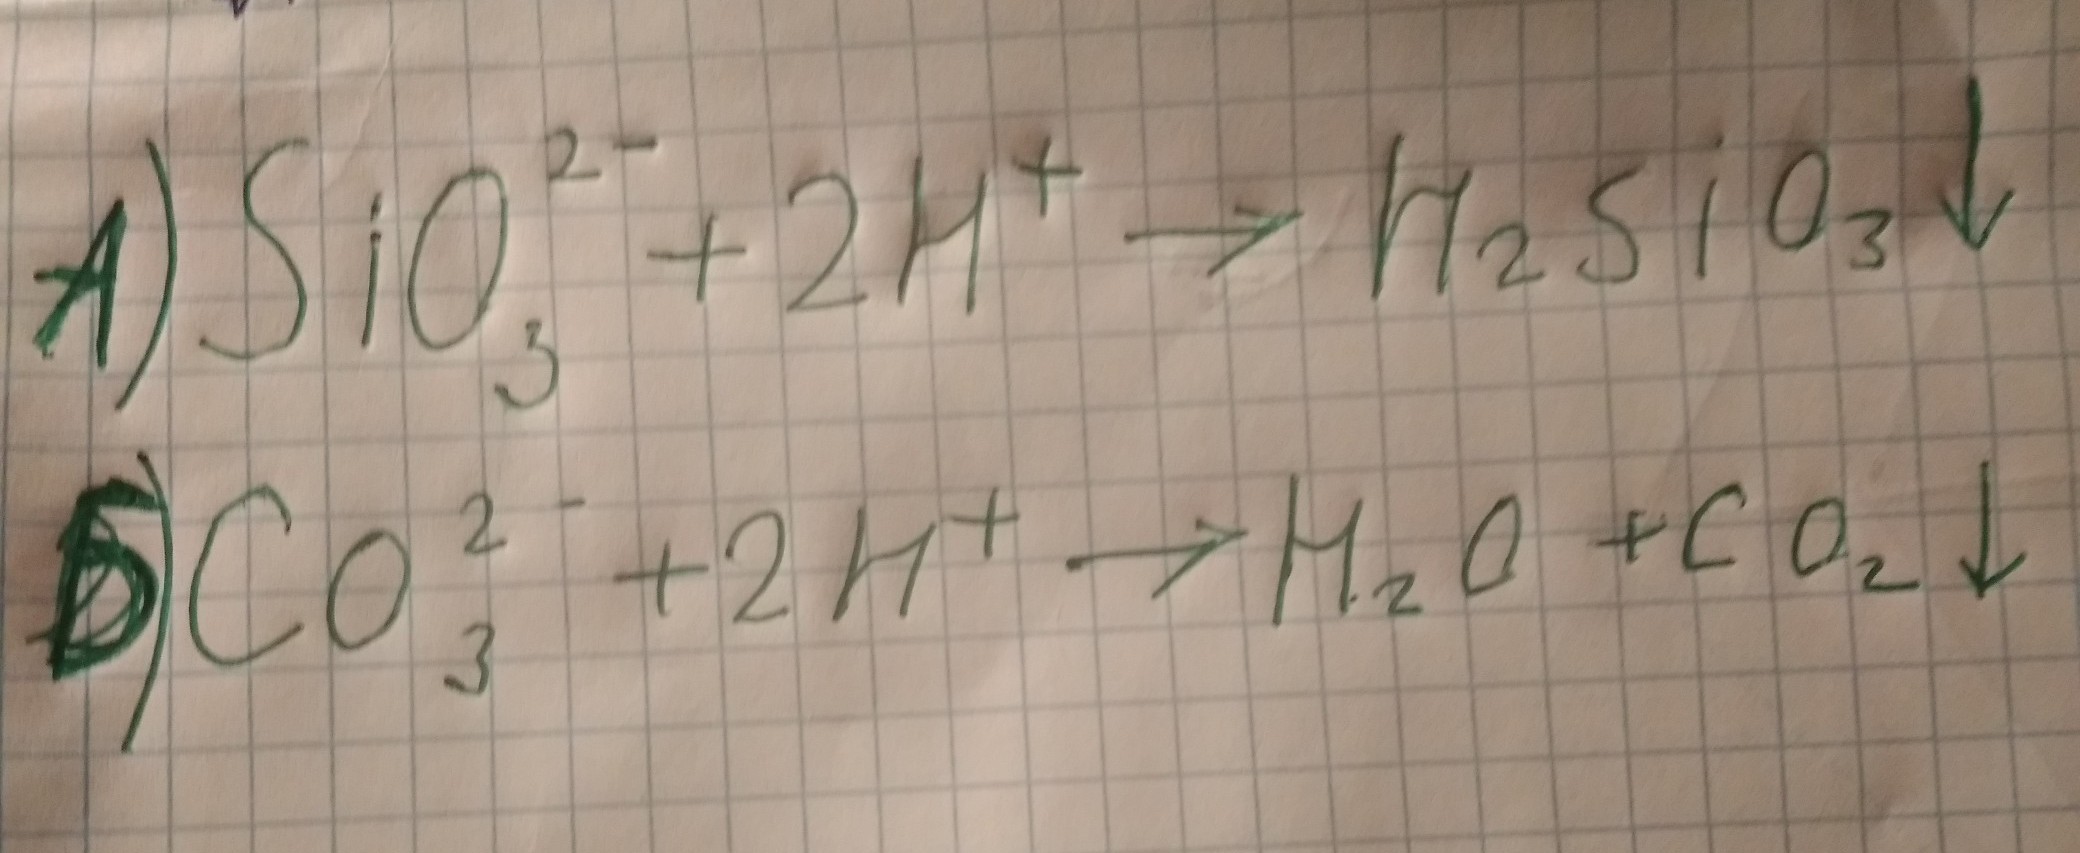 А) SiO₃²⁻ + 2H⁺ → H₂SiO₃↓
Б) CO₃²⁻ + 2H⁺ → H₂O + CO₂↓